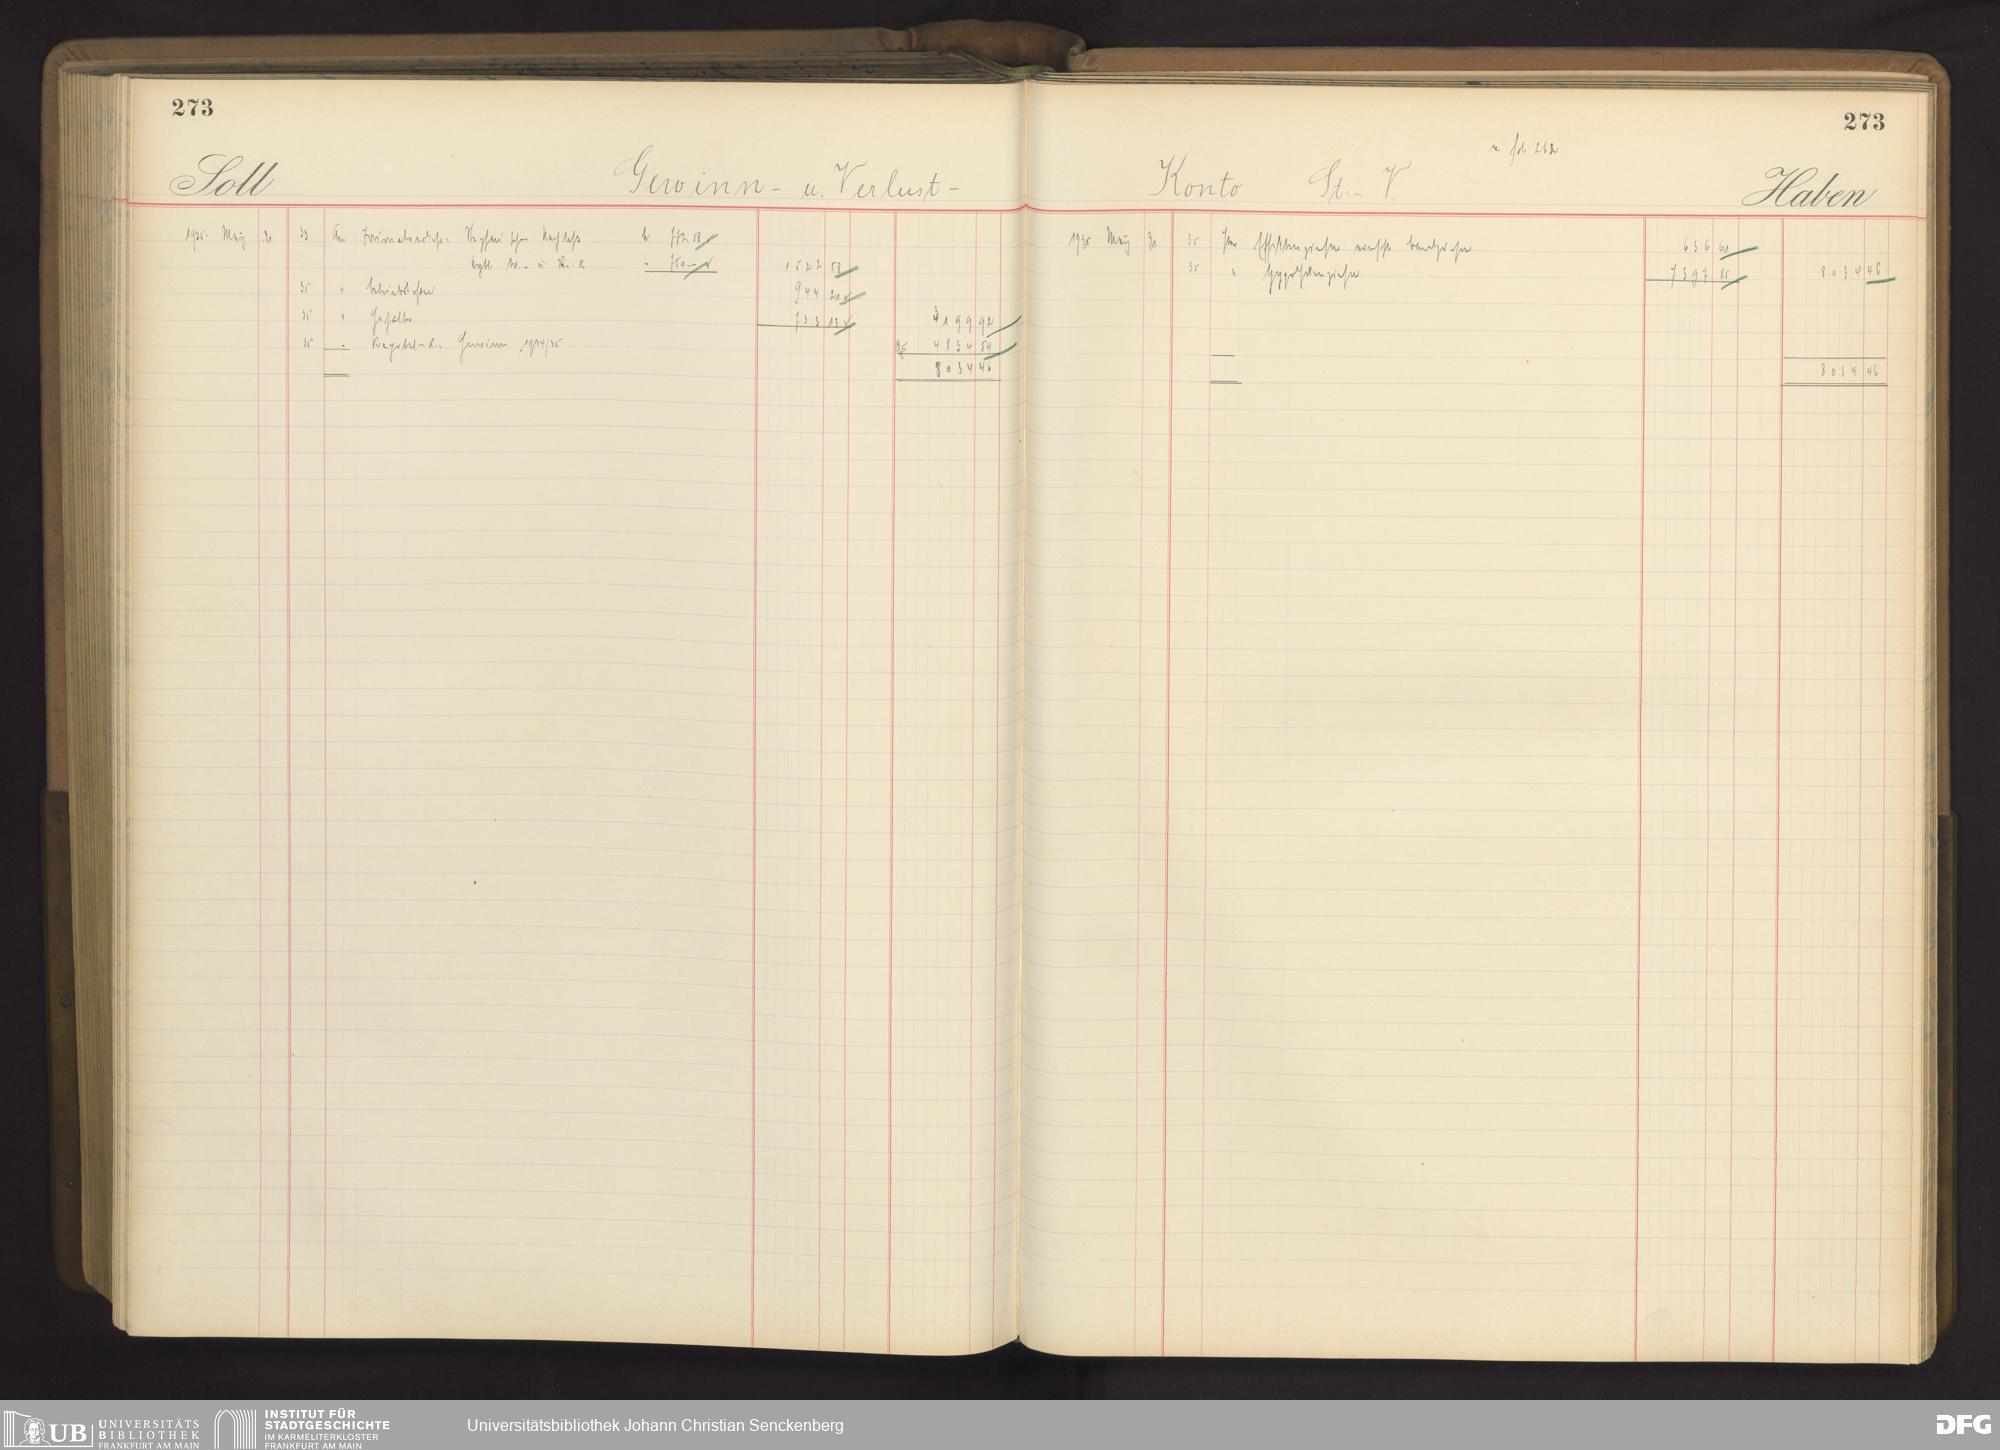 273
273
v. fol. 262
Soll
Gewinn- u. Verlust-
Konto St.-V.
Haben
1935 März 31 33 An
1522 58
35 " Betriebskosten 944 21
35 " Gehälter 733 13 3199 92
35 " Kapital-K. Gewinn 1934/35 35 4834 54
8034 46
1935 März 31 35 Per Effektenzinsen 636 61
35 " Hypothekenzinsen 7397 85 8034 46
8034 46
UB UNIVERSITÄTS
BIBLIOTHEK
FRANKFURT AM MAIN
INSTITUT FÜR
STADTGESCHICHTE
IM KARMELITERKLOSTER
FRANKFURT AM MAIN
Universitätsbibliothek Johann Christian Senckenberg
DFG